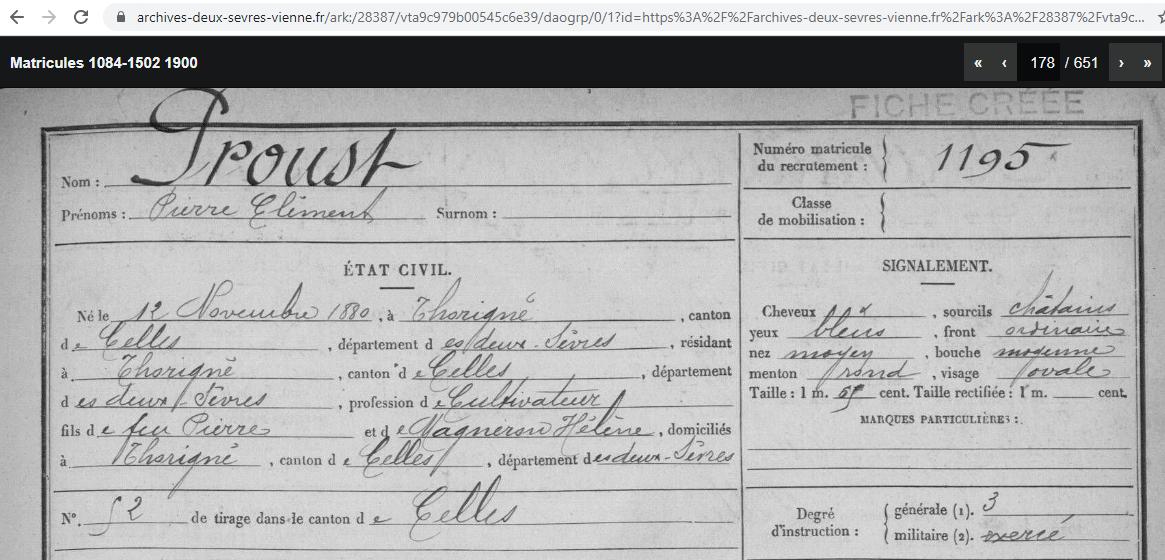 archives-deux-sevres-vienne.fr/ark:/28387/vta9c979b00545c6e39/daogrp/0/1?id=https%3A%2F%2Farchives-deux-sevres-vienne.fr%2Fark%3A%2F28387%2Fvta9c...
Matricules 1084-1502 1900
« ‹ 178 / 651 › »
FICHE CRÉÉE
Nom : Proust
Prénoms : Pierre Clément Surnom :
ÉTAT CIVIL.
Né le 12 Novembre 1880, à Thorigné, canton
de Celles, département des deux-Sèvres, résidant
à Thorigné, canton de Celles, département
des deux-Sèvres, profession de Cultivateur
fils de feu Pierre et de Magneron Hélène, domiciliés
à Thorigné, canton de Celles, département des deux-Sèvres
N°. 52 de tirage dans le canton de Celles
Numéro matricule
du recrutement : 1195
Classe
de mobilisation :
SIGNALEMENT.
Cheveux et, sourcils châtains
yeux bleus, front ordinaire
nez moyen, bouche moyenne
menton rond, visage ovale
Taille : 1 m. cent. Taille rectifiée : 1 m. cent.
MARQUES PARTICULIÈRES :
Degré
d'instruction :
générale (1). 3
militaire (2). exercé